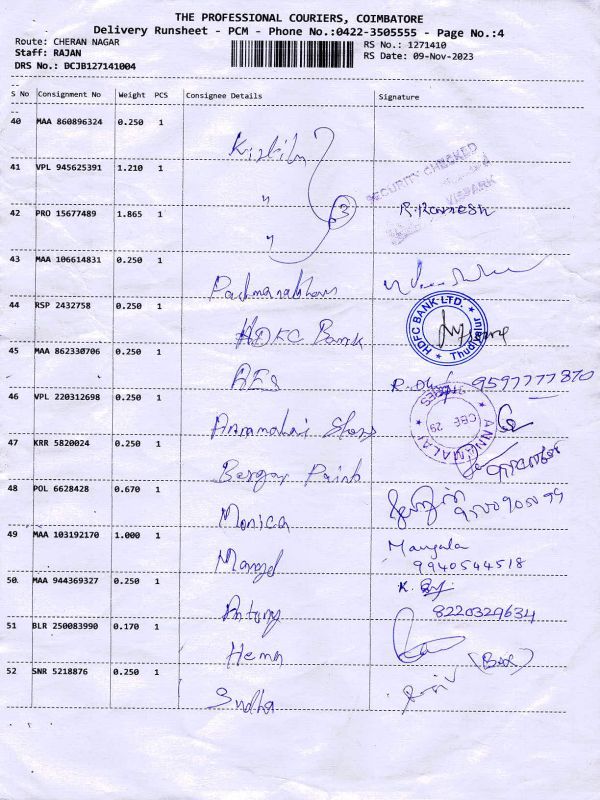 THE PROFESSIONAL COURIERS, COIMBATORE
Delivery Runsheet - PCM - Phone No.:0422-3505555 - Page No.:4
Route: CHERAN NAGAR RS No.: 1271410
Staff: RAJAN RS Date: 09-Nov-2023
DRS No.: DCJB127141004
S No Consignment No Weight PCS Consignee Details Signature
40 MAA 860896324 0.250 1
SECURITY CHECKED
41 VPL 945625391 1.210 1 "
VISPARK
42 PRO 15677489 1.865 1 " 3 R.Ramesh
43 MAA 106614831 0.250 1 Padmanabhan
44 RSP 2432758 0.250 1 HDFC Bank HDFC BANK LTD. Thudiyalur
45 MAA 862330706 0.250 1 AES 9597777870
46 VPL 220312698 0.250 1 Annamalai Stores ANNAMALAI CBE 29
47 KRR 5820024 0.250 1 Berger Paints
48 POL 6628428 0.670 1 Monica
49 MAA 103192170 1.000 1 Mangala
9940544518
50 MAA 944369327 0.250 1 Antony 8220329634
51 BLR 250083990 0.170 1 Hema
52 SNR 5218876 0.250 1 Sudha